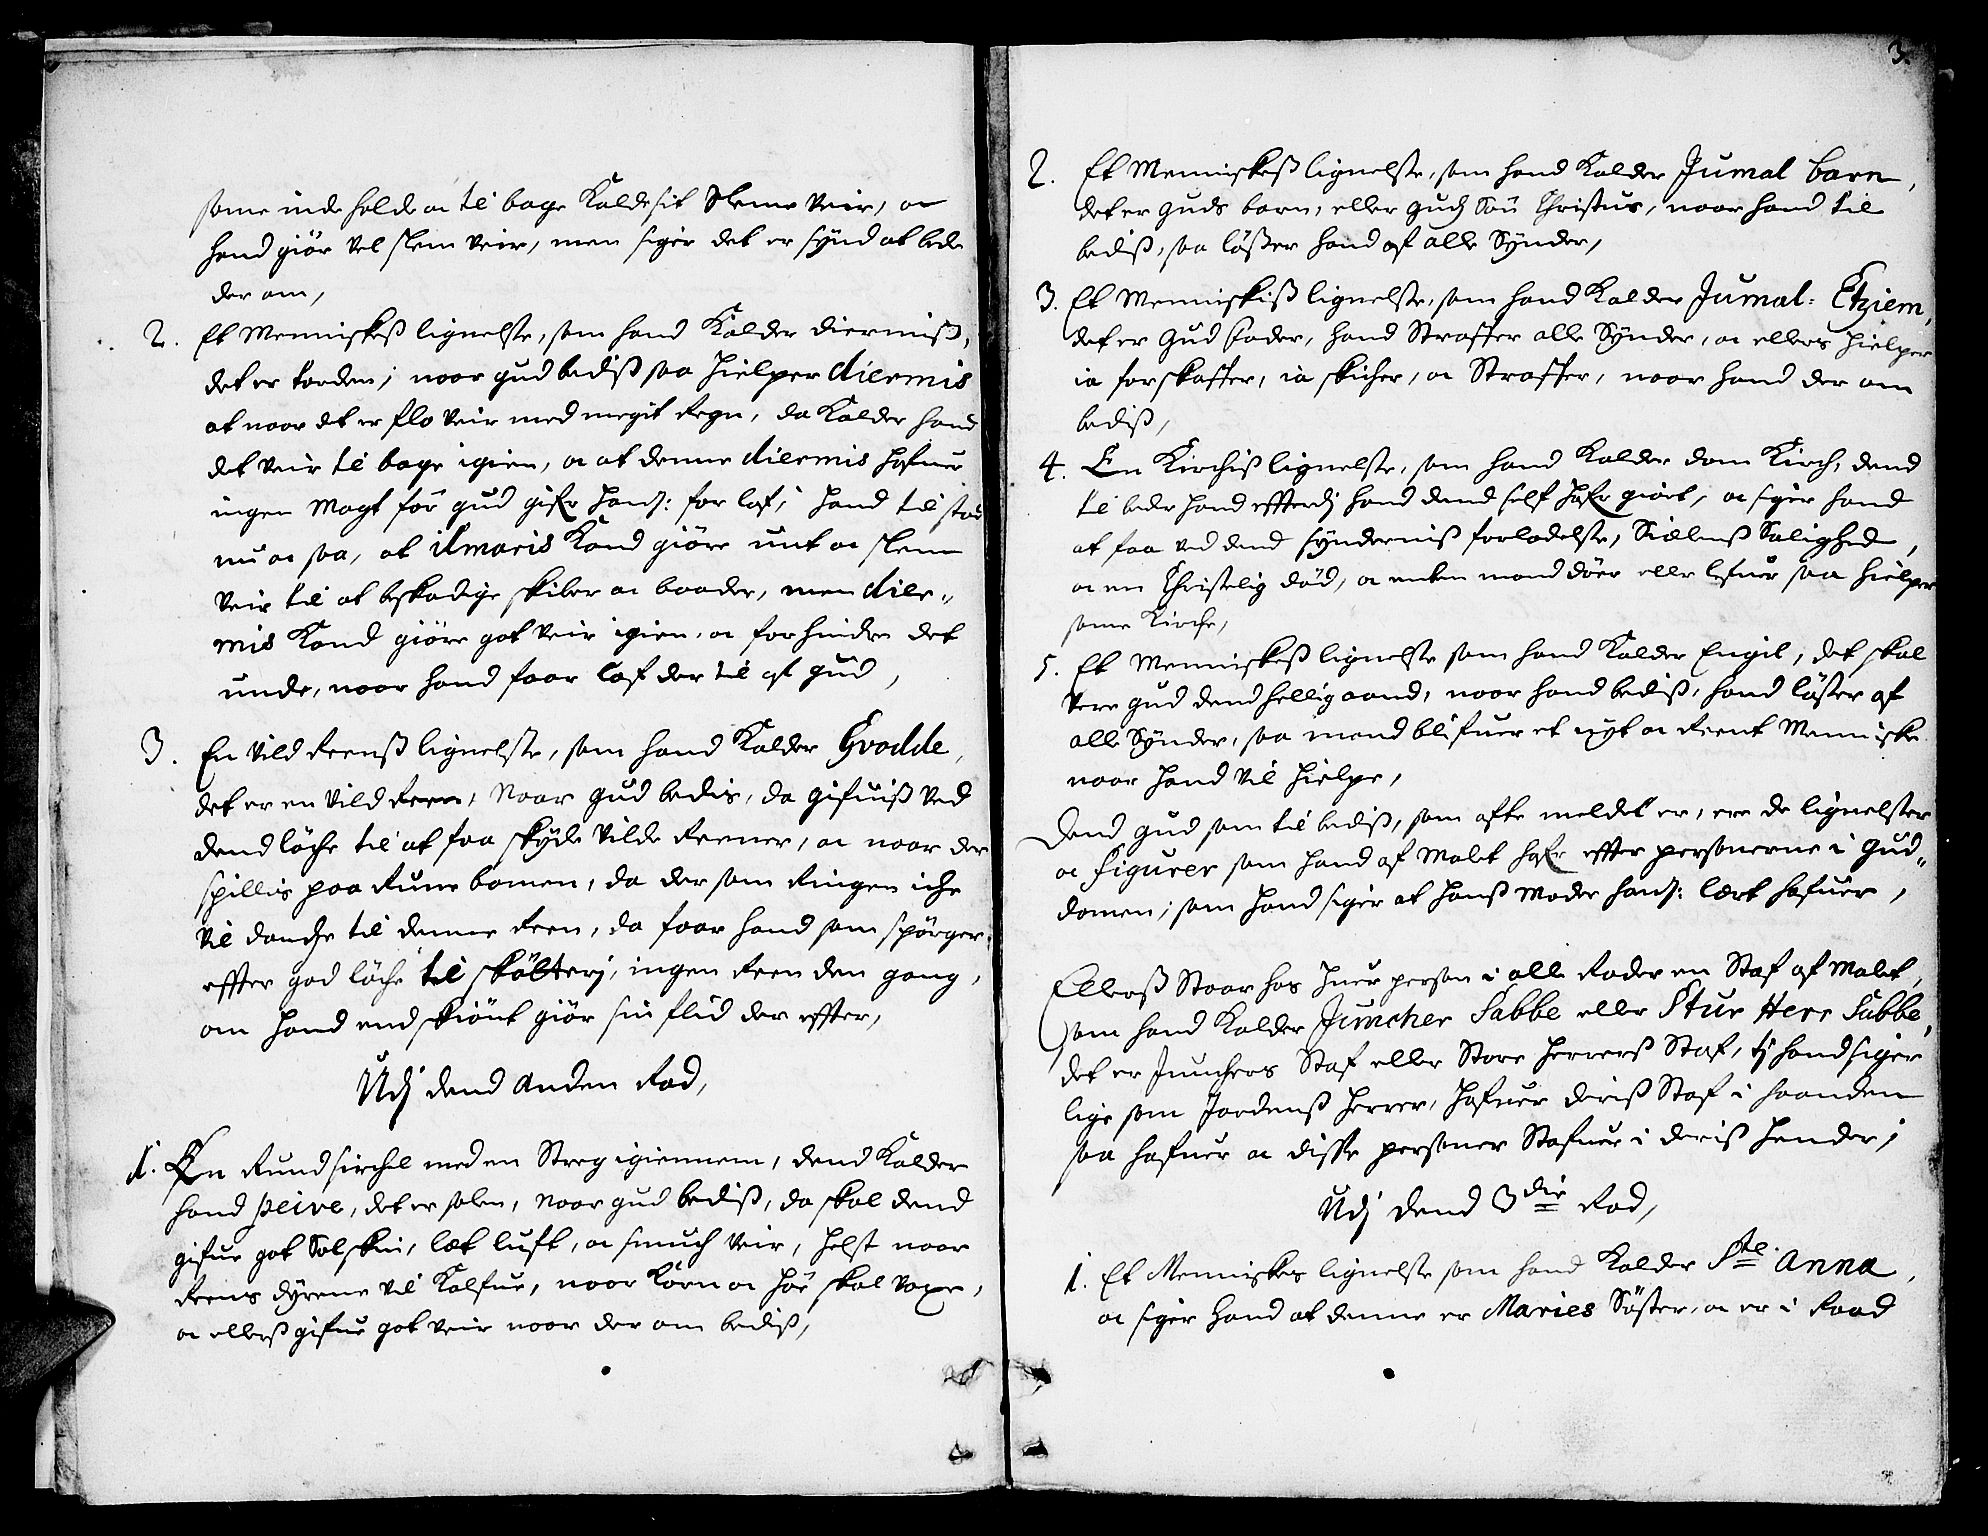 some inde holde oc til bage kalde sit slemme veir, oc
hand giör vel slem veir, men siger det er synd at bede
der om,
2. Et Menniskeß lignelse, som hand kalder diermiß,
det er torden, naar gud bediß saa hielper diermis
at naar det er flo veir med megit regn, da kalder hand
det veir til bage igien, oc at denne diermis hafuer
ingen magt för gud gifr hans: for lof, hand til stod
nu oc saa, at ilmaris kand giöre unt oc slem
veir til at beskadige skiber oc baader, men dier„
mis kand giöre got veir igien, oc forhindre det
unde, naar hand faar lof der til af gud,
3. En vild reenß lignelse, som hand kalder Gvodde,
det er en vild reen, Naar gud bedis, da gifuiß ved
dend löche til at faa skyde vilde reener, oc naar der
spillis paa Rune bomen, da der som ringen iche
vil dandse til denne reen, da faar hand som spörger
effter god löche til skötterj, ingen reen den gang,
om hand end skiönt giör sin flid der effter,
Udj dend anden Rad,
1. En rund sirchel med en Streg igiennem, dend kalder
hand peive, det er solen, Naar gud bediß, da skal dend
gifue got Solskin, let luft, oc smuch veir, helst naar
reens dyrene vil kalfue, naar korn oc höe skal voxe,
oc ellerß gifue got veir naar der om bediß,
3.
2. Et Menniskeß lignelse, som hand kalder Jumal barn,
det er guds barn, eller guds Sön Christus, naar hand til
bediß, saa löser hand af alle Synder,
3. Et Menniskiß lignelse, som hand kalder Jumal: Etziem,
det er Gud fader, hand Straffer alle Synder, oc ellers hielper
ia forskaffer, ia skicher, oc Straffer, naar hand der om
bediß,
4. En Kirchiß lignelse, som hand kalder dom Kirch, dend
til beder hand effterdj hand dend self hafr giört, oc siger hand
at faa ved dend synderniß forladelse, Siælenß Salighed,
oc en Christelig död, oc enten mand döer eller lefuer saa hielper
samme Kirche,
5. Et Menniskeß lignelse som hand kalder Engil, det skal
vere gud dend hellig aand, naar hand bediß, hand löser af
alle Synder, saa mand blifuer et nyt oc reent Menniske
naar hand vil hielpe,
Dend gud som til bediß, som ofte meldet er, ere de lignelser
oc figurer som hand af malet hafr effter personerne i Gud„
domen, som hand siger at hanß Moder hans: lert hafuer,
Ellerß Staar hos huer person i alle rader en Staf af malet,
som hand kalder Juncher Sabbe eller Stur Herr Sabbe,
det er Junchers Staf eller Store herrerß Staf, tj hand siger
lige som Jordenß herrer, hafuer deriß Staf i haanden
saa hafuer oc disse personer Stafuer i deriß hender,
Udj dend 3die Rad,
1. Et Menniskes lignelse som hand kalder Ste Anna,
oc siger hand at denne er Maries Söster, oc er i raad